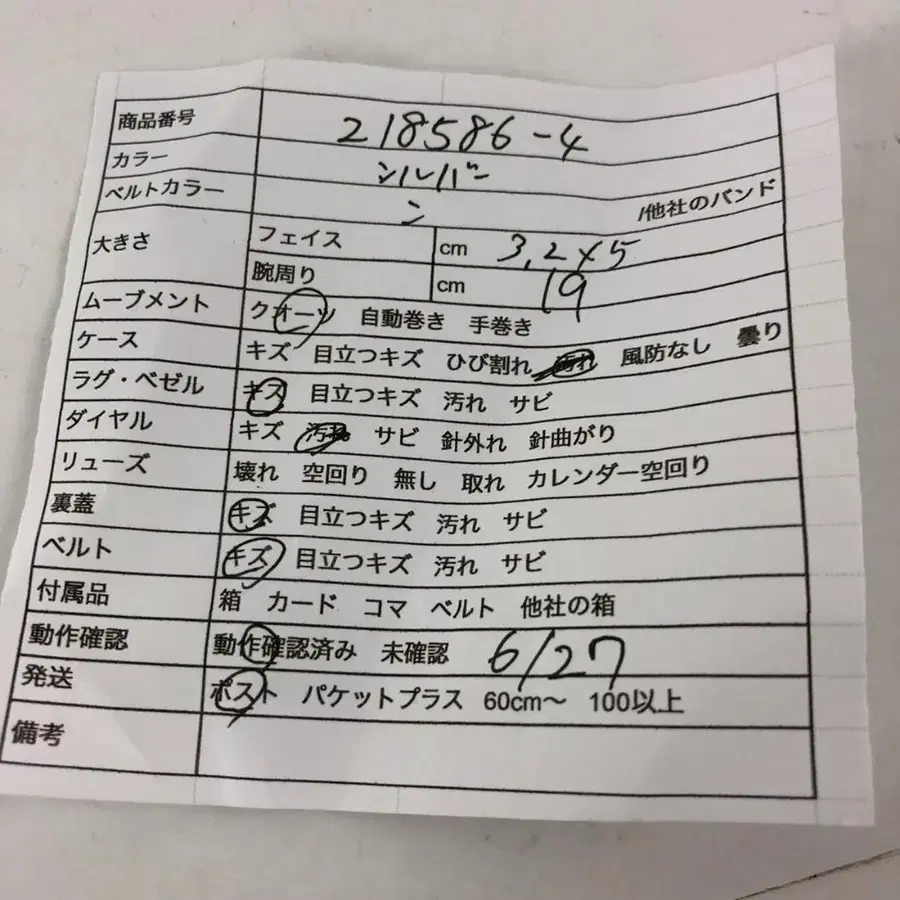 商品番号 218586-4
カラー シルバー
ベルトカラー 〃 /他社のバンド
大きさ フェイス cm 3.2×5
腕周り cm 19
ムーブメント クオーツ 自動巻き 手巻き
ケース キズ 目立つキズ ひび割れ 汚れ 風防なし 曇り
ラグ・ベゼル キズ 目立つキズ 汚れ サビ
ダイヤル キズ 汚れ サビ 針外れ 針曲がり
リューズ 壊れ 空回り 無し 取れ カレンダー空回り
裏蓋 キズ 目立つキズ 汚れ サビ
ベルト キズ 目立つキズ 汚れ サビ
付属品 箱 カード コマ ベルト 他社の箱
動作確認 動作確認済み 未確認 6/27
発送 ポスト パケットプラス 60cm〜 100以上
備考